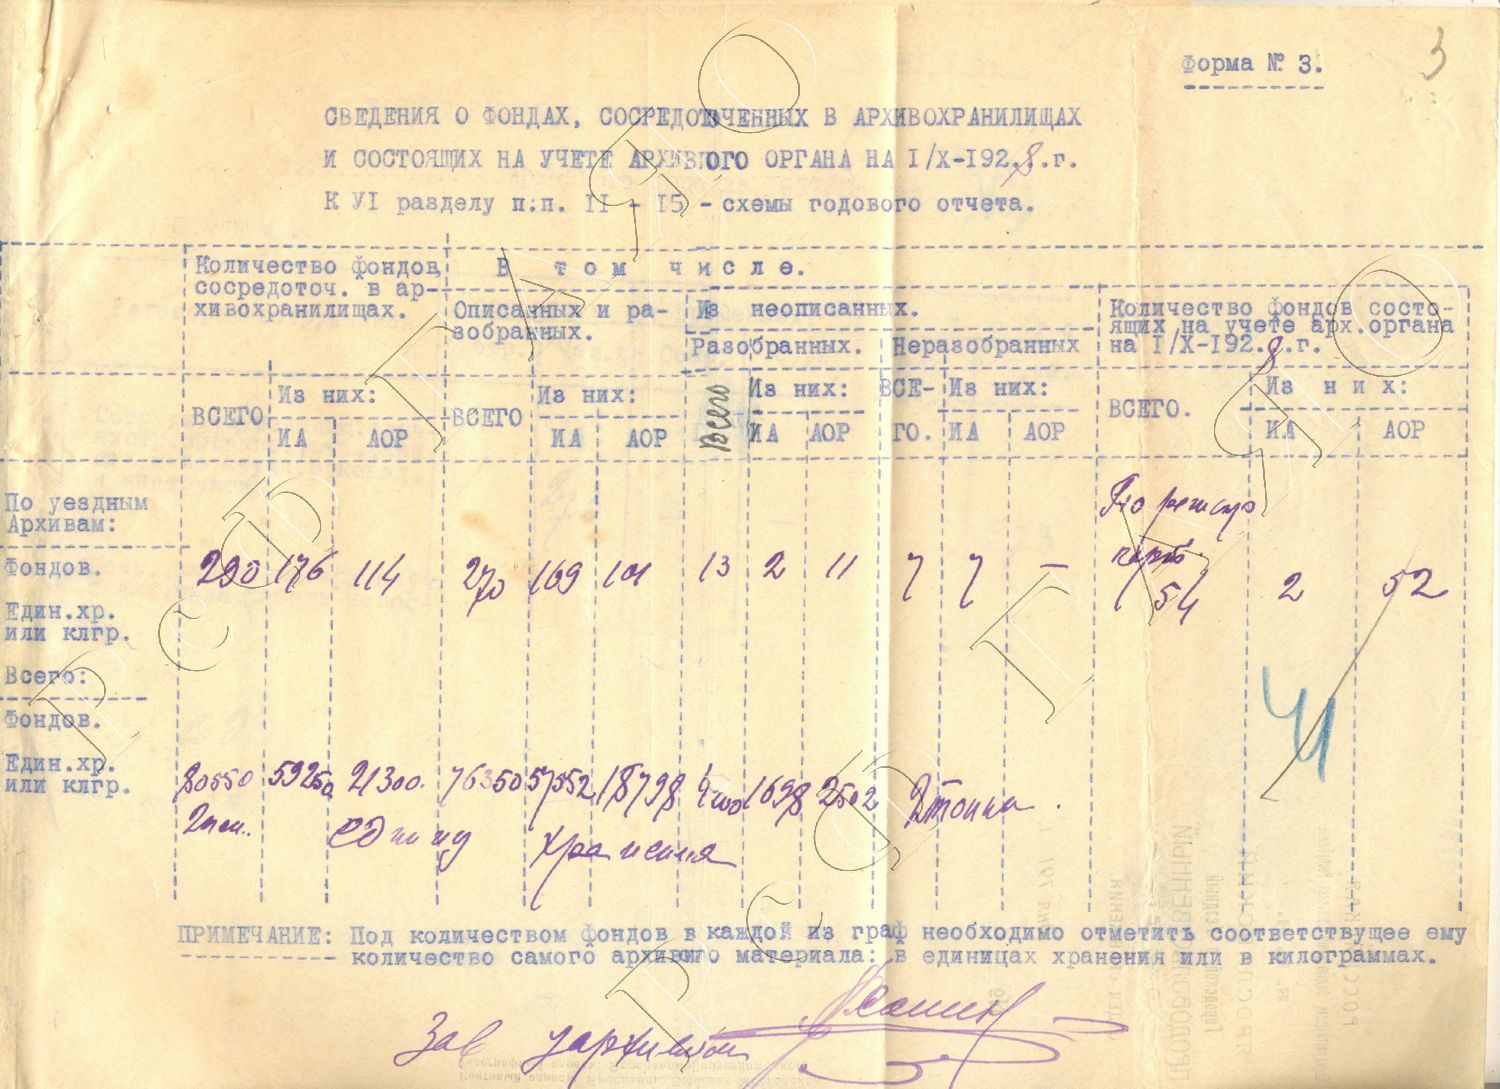 3
Форма № 3.
СВЕДЕНИЯ О ФОНДАХ, СОСРЕДОТОЧЕННЫХ В АРХИВОХРАНИЛИЩАХ
И СОСТОЯЩИХ НА УЧЕТЕ АРХИВНОГО ОРГАНА НА I/X-192.8.г.
К УI разделу п:п. II - I5 - схемы годового отчета.
Количество фондов, сосредоточ. в ар-
хивохранилищах.
В том числе.
Описанных и ра-
зобранных.
Из неописанных.
Разобранных. Неразобранных
Количество фондов состо-
ящих на учете арх.органа
на I/X-192.8.г.
ВСЕГО Из них: ВСЕГО Из них: Всего Из них: ВСЕ- Из них: ВСЕГО. Из них:
ИА АОР ИА АОР ИА АОР ГО. ИА АОР ИА АОР
По уездным
Архивам:
По регистр
Фондов. 290 176 114 270 169 101 13 2 11 7 7 — 54 2 52
Един.хр.
или клгр.
Всего:
Фондов.
Ч
Един.хр.
или клгр. 80550 59250 21300. 76350 57552 18798 4200 1698 2502 2 тонны.
единиц хранения
ПРИМЕЧАНИЕ: Под количеством фондов в каждой из граф необходимо отметить соответствущее ему
количество самого архивного материала: в единицах хранения или в килограммах.
Зав
РСФРГАЯО
РСФРГАЯО